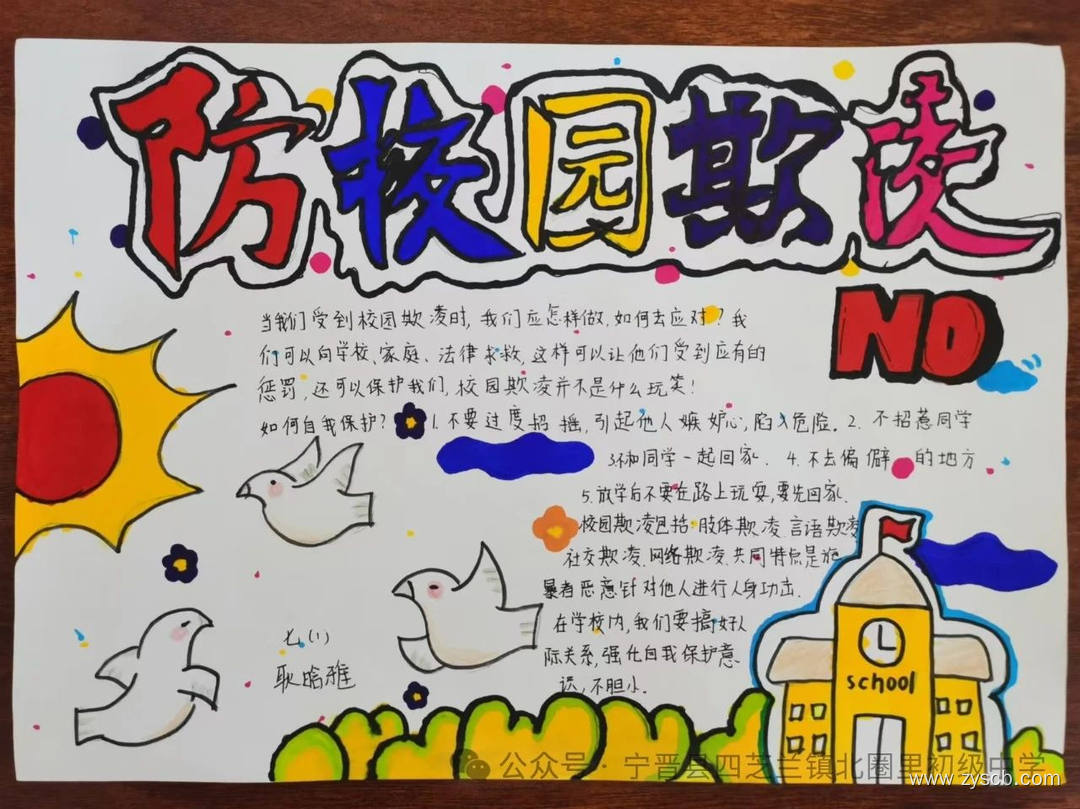 防校园欺凌
NO
当我们受到校园欺凌时,我们应怎样做,如何去应对?我
们可以向学校、家庭、法律求救,这样可以让他们受到应有的
惩罚,还可以保护我们,校园欺凌并不是什么玩笑!
如何自我保护? 1.不要过度招摇,引起他人嫉妒心,陷入危险。2.不招惹同学
3.和同学一起回家. 4.不去偏僻的地方
5.放学后不要在路上玩耍,要先回家.
校园欺凌包括:肢体欺凌.言语欺凌
社交欺凌.网络欺凌.共同特点是施
暴者恶意针对他人进行人身功击.
在学校内,我们要搞好人
际关系,强化自我保护意
识,不胆小.
七(1)
耿晗雅
school
公众号·宁晋县四芝兰镇北圈里初级中学
www.zyscb.com